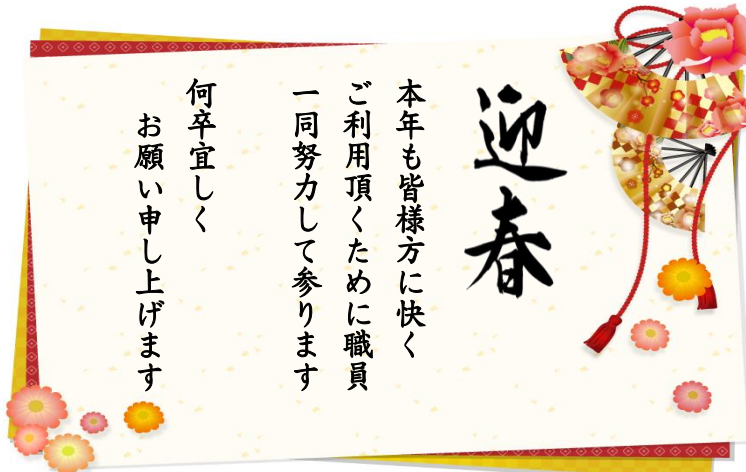 迎春
本年も皆様方に快く
ご利用頂くために職員
一同努力して参ります
何卒宜しく
お願い申し上げます